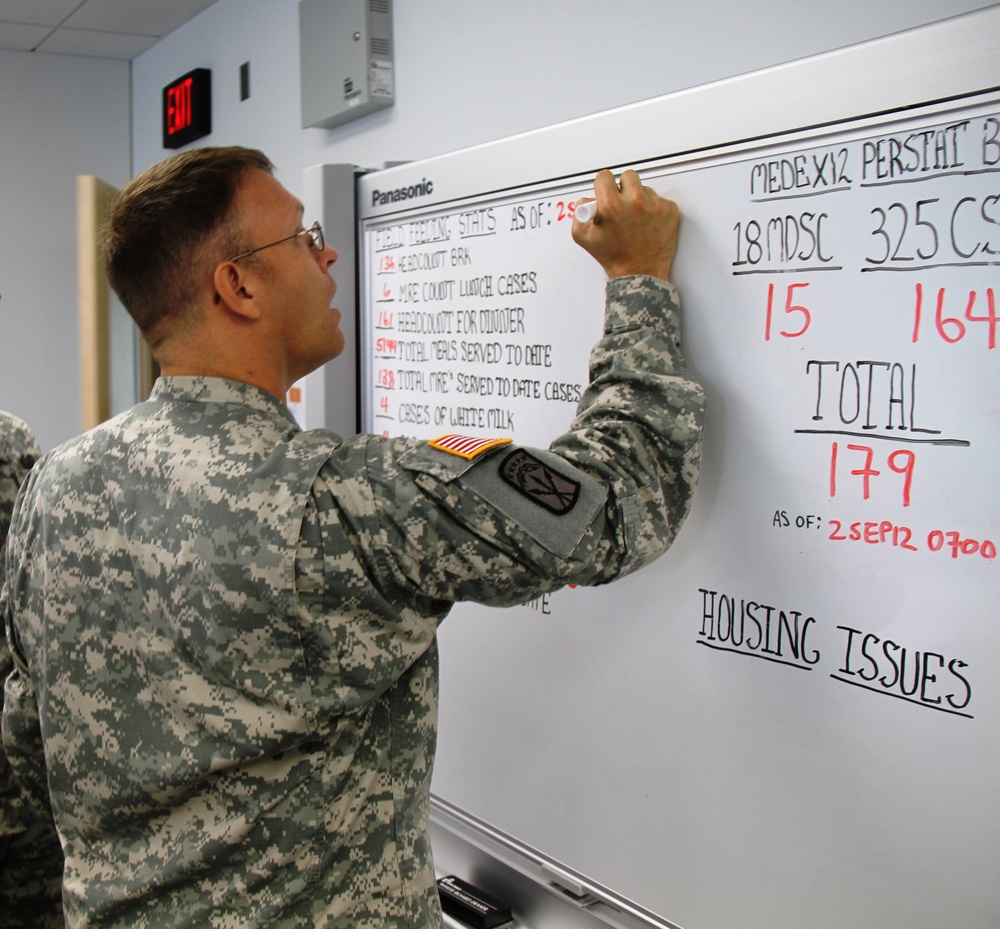 EXIT
Panasonic
FIELD FEEDING STATS AS OF: 2S
134 HEADCOUNT BRK
6 MRE COUNT LUNCH CASES
161 HEADCOUNT FOR DINNER
5144 TOTAL MEALS SERVED TO DATE
138 TOTAL MRE'S SERVED TO DATE CASES
4 CASES OF WHITE MILK
MEDEX12 PERSTAT B
18MDSC 325CS
15 164
TOTAL
179
AS OF: 2SEP12 0700
HOUSING ISSUES